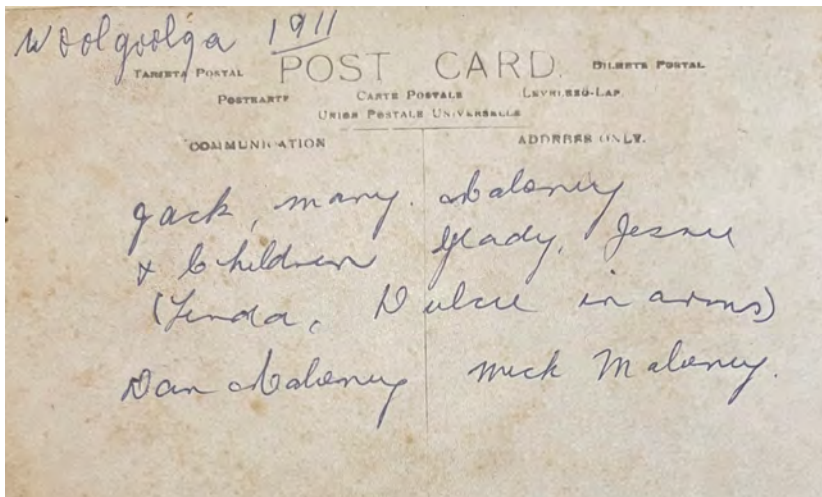 Woolgoolga 1911
POST CARD.
TARJETA POSTAL
POSTKARTE CARTE POSTALE LEVELEZO-LAP.
UNION POSTALE UNIVERSELLE
COMMUNICATION ADDRESS ONLY.
Jack, Mary. Maloney
& Children Glady, Jessie
(Linda, Dulcie in arms)
Dan Maloney Mick Maloney.